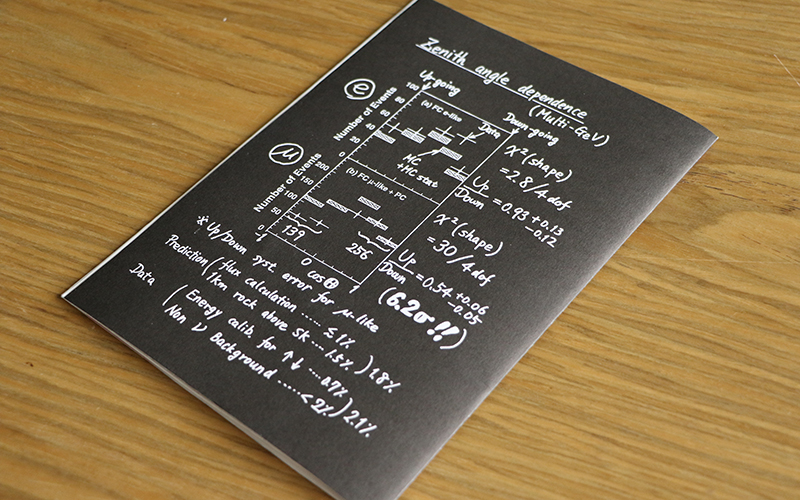 Zenith angle dependence
(Multi-GeV)
Up-going
Down-going
e
Number of Events
100
80
60
40
20
0
(a) FC e-like
Data
MC
+MC stat
χ² (shape)
= 2.8/4 dof
Up
Down
= 0.93 +0.13
-0.12
μ
Number of Events
200
150
100
50
0
(b) FC μ-like + PC
139
256
-1
0
1
cosΘ
χ² (shape)
= 30/4 dof
Up
Down
= 0.54 +0.06
-0.05
(6.2σ!!)
※ Up/Down syst. error for μ-like
Prediction ( flux calculation ..... ≲ 1%
1km rock above SK .... 1.5% ) 1.8%
Data ( Energy calib. for ↑↓ .... 0.7%
Non ν Background ..... < 2% ) 2.1%